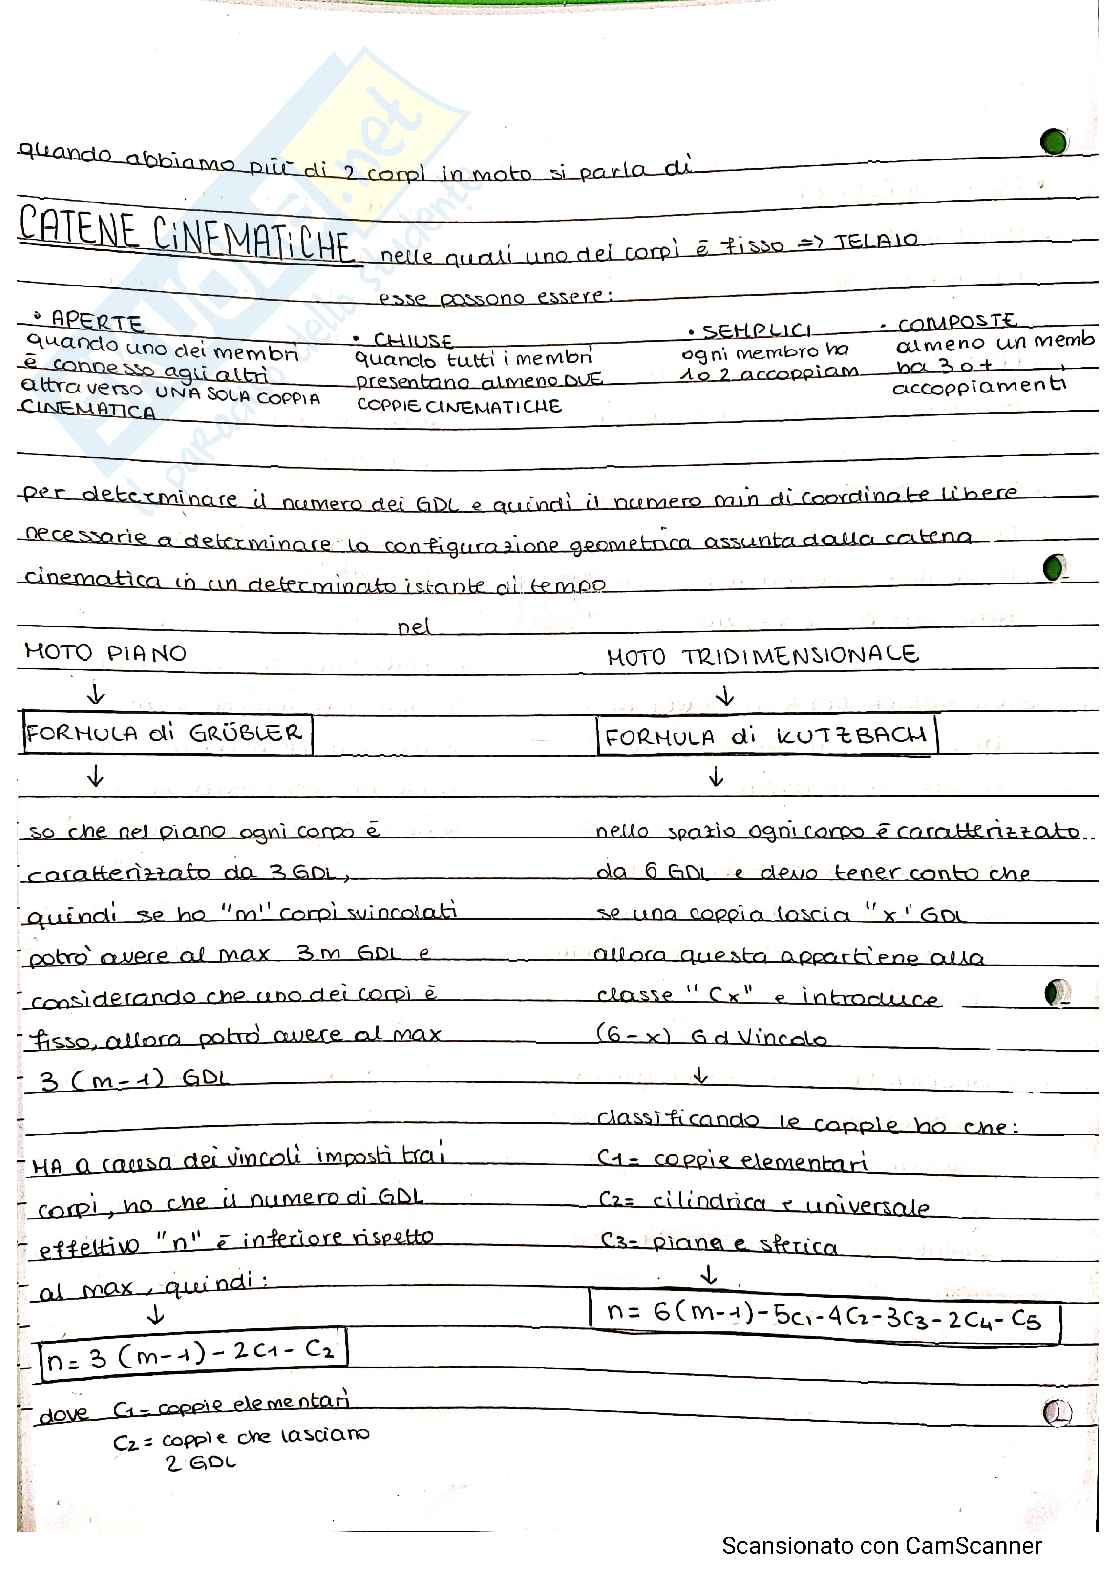 quando abbiamo più di 2 corpi in moto si parla di
CATENE CiNEMATiCHE nelle quali uno dei corpi è fisso => TELAIO
esse possono essere:
• APERTE
quando uno dei membri
è connesso agli altri
attraverso UNA SOLA COPPIA
CINEMATICA
• CHIUSE
quando tutti i membri
presentano almeno DUE
COPPIE CINEMATICHE
• SEMPLICI
ogni membro ha
1 o 2 accoppiam
• COMPOSTE
almeno un memb
ha 3 o +
accoppiamenti
per determinare il numero dei GDL e quindi il numero min di coordinate libere
necessarie a determinare la configurazione geometrica assunta dalla catena
cinematica in un determinato istante di tempo
nel
MOTO PIANO
↓
FORMULA di GRÜBLER
↓
so che nel piano ogni corpo è
caratterizzato da 3 GDL,
quindi se ho "m" corpi svincolati
potrò avere al max 3m GDL e
considerando che uno dei corpi è
fisso, allora potrò avere al max
3 (m-1) GDL
MA a causa dei vincoli imposti tra i
corpi, ho che il numero di GDL
effettivo "n" è inferiore rispetto
al max, quindi:
↓
n= 3 (m-1) - 2C1 - C2
dove C1 = coppie elementari
C2 = coppie che lasciano
2 GDL
MOTO TRIDIMENSIONALE
↓
FORMULA di KUTZBACH
↓
nello spazio ogni corpo è caratterizzato
da 6 GDL e devo tener conto che
se una coppia lascia "x" GDL
allora questa appartiene alla
classe "Cx" e introduce
(6-x) G d Vincolo
↓
classificando le coppie ho che:
C1 = coppie elementari
C2 = cilindrica e universale
C3 = piana e sferica
↓
n= 6(m-1)-5C1-4C2-3C3-2C4-C5
Scansionato con CamScanner